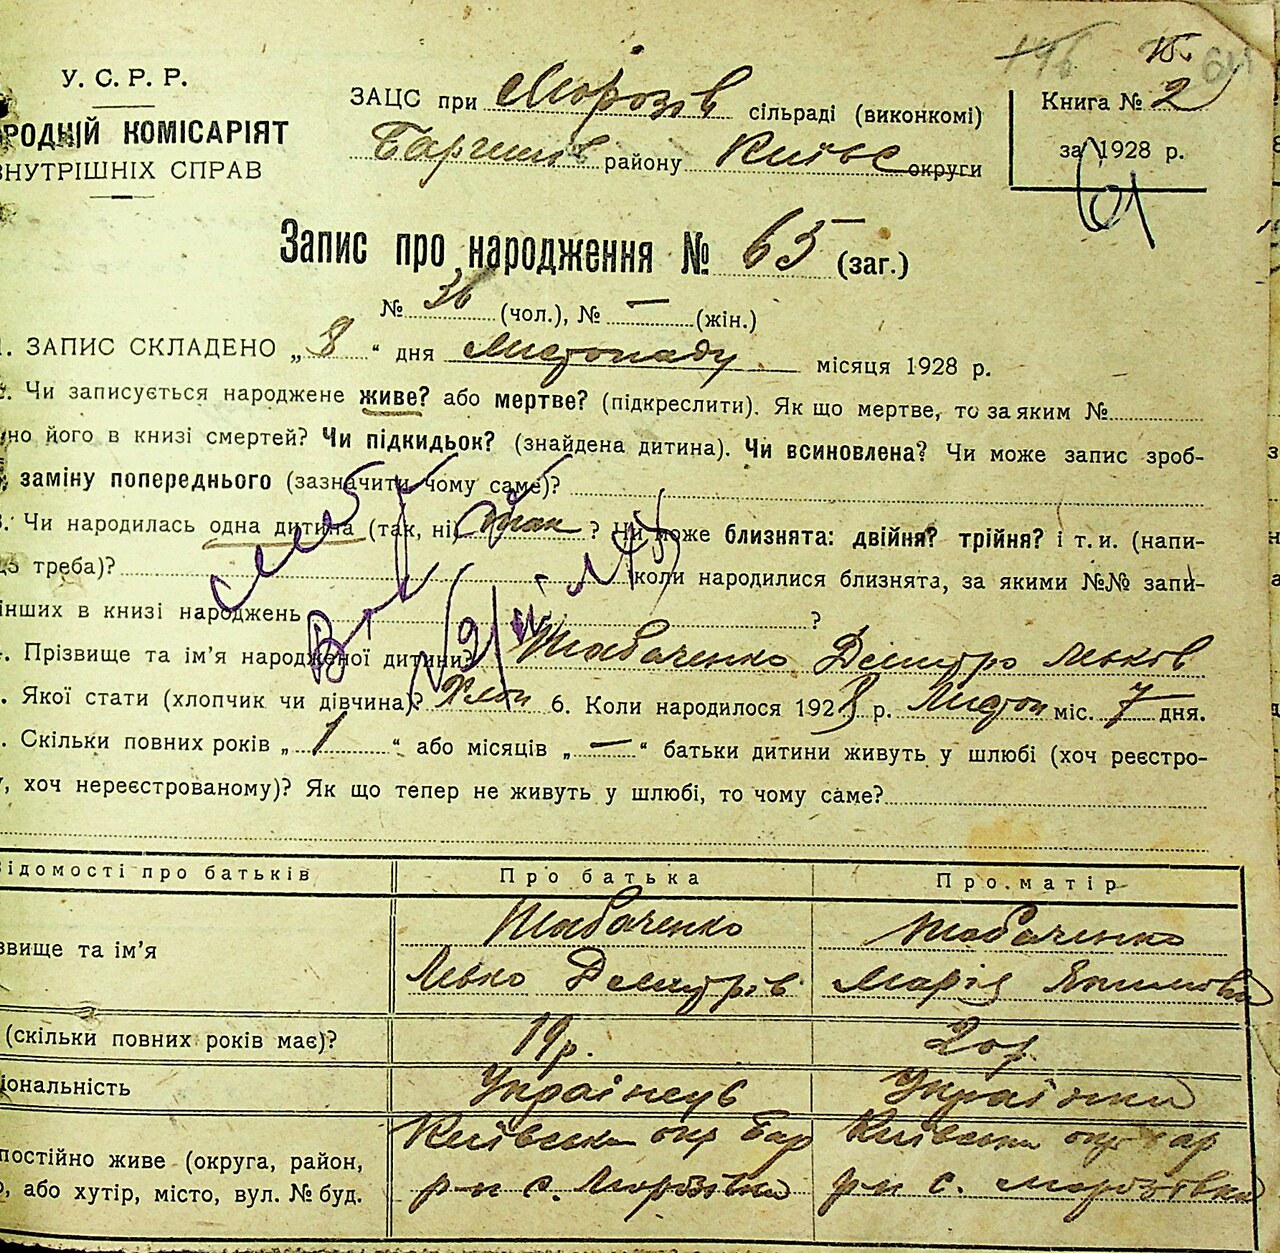 У. С. Р. Р.
РОДНІЙ КОМІСАРІЯТ
НУТРІШНІХ СПРАВ
ЗАЦС при Морозів сільраді (виконкомі)
Баришів району Київс округи
196 15. 64
Книга № 2
за 1928 р.
61
Запис про народження № 65 (заг.)
№ 36 (чол.), № — (жін.)
1. ЗАПИС СКЛАДЕНО „ 8 “ дня Листопаду місяця 1928 р.
Чи записується народжене живе? або мертве? (підкреслити). Як що мертве, то за яким №
но його в книзі смертей? Чи підкидьок? (знайдена дитина). Чи всиновлена? Чи може запис зроб-
заміну попереднього (зазначити чому саме)?
3. Чи народилась одна дитина (так, ні) так ? Чи може близнята: двійня? трійня? і т. и. (напи-
треба)? коли народилися близнята, за якими №№ запи-
інших в книзі народжень ?
Прізвище та ім'я народженої дитини? Табаченко Дмитро Львов
Якої стати (хлопчик чи дівчина)? Хлоп 6. Коли народилося 1928 р. Листоп міс. 7 дня.
Скільки повних років „ 1 “ або місяців „ — “ батьки дитини живуть у шлюбі (хоч реєстро-
у, хоч нереєстрованому)? Як що тепер не живуть у шлюбі, то чому саме?
Відомості про батьків Про батька Про матір
звище та ім'я Табаченко Табаченко
Левко Дмитрів Марія Якимовна
(скільки повних років має)? 19р. 20р
ціональність Українець Українка
постійно живе (округа, район, Київська окр Бар Київська окр Бар
або хутір, місто, вул. № буд. р-н с. Морозівка р-н с. Морозовка